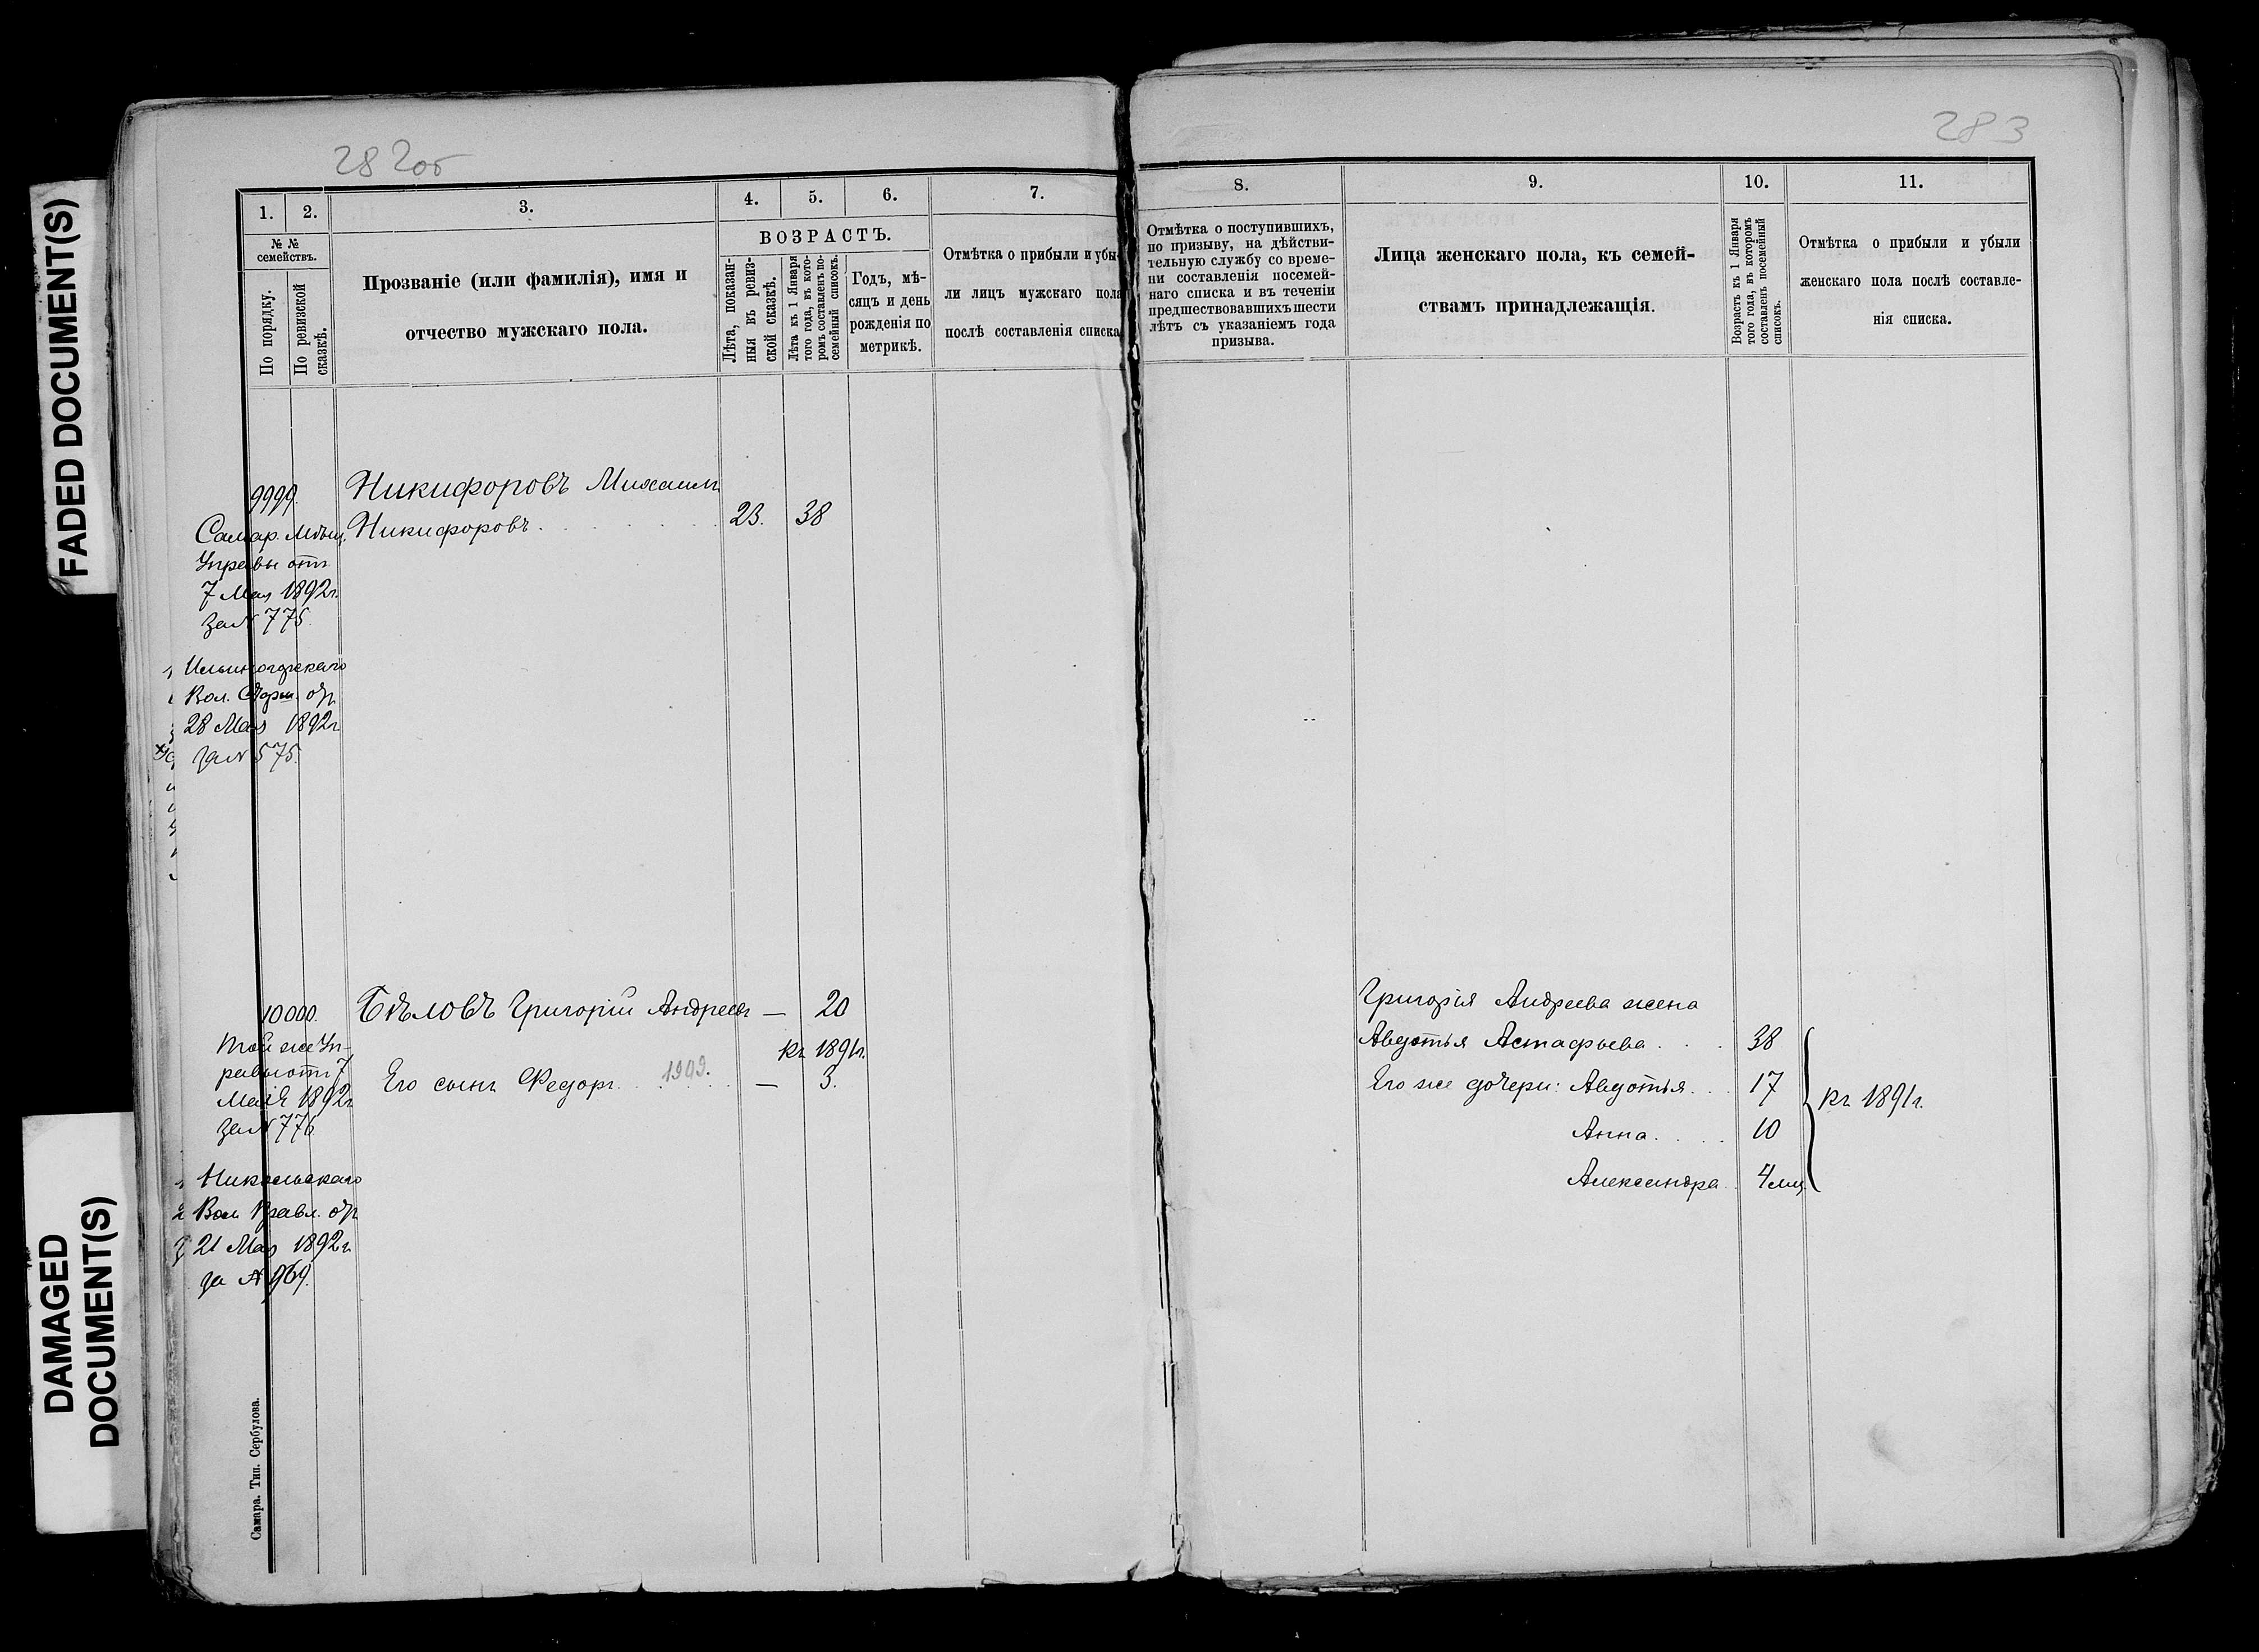 FADED DOCUMENT(S)
DAMAGED
DOCUMENT(S)
282об
1.
2.
3.
4.
5.
6.
7.
№ №
семействъ.
По порядку.
По ревизской
сказкѣ.
Прозваніе (или фамилія), имя и
отчество мужскаго пола.
ВОЗРАСТЪ.
Лѣта, показан-
ныя въ ревиз-
ской сказкѣ.
Лѣта къ 1 Января
того года, въ кото-
ромъ составленъ по-
семейный списокъ.
Годъ, мѣ-
сяцъ и день
рожденія по
метрикѣ.
Отмѣтка о прибыли и убы-
ли лицъ мужскаго пола
послѣ составленія списка
9999.
Никифоровъ Михаилъ
Никифоровъ. 23. 38
Самар. Мѣщ.
Управы отъ
7 Мая 1892г.
за № 775.
Вол. Старш. отъ
28 Мая 1892г.
за № 575.
10000.
Бѣловъ Григорій Андреевъ — 20
къ 1891г.
Его сынъ Федоръ. 1909. — 3.
Той же Уп-
равы отъ 7
Мая 1892г
за № 776
Никольскаго
Вол. Правл. отъ
21 Мая 1892г.
за № 969.
Самара. Тип. Сербулова.
283
8.
9.
10.
11.
Отмѣтка о поступившихъ,
по призыву, на дѣйстви-
тельную службу со време-
ни составленія посемей-
наго списка и въ теченіи
предшествовавшихъ шести
лѣтъ съ указаніемъ года
призыва.
Лица женскаго пола, къ семей-
ствамъ принадлежащія.
Возрастъ къ 1 Января
того года, въ которомъ
составленъ посемейный
списокъ.
Отмѣтка о прибыли и убыли
женскаго пола послѣ составле-
нія списка.
Григорія Андреева жена
Авдотья Астафьева. 38
Его же дочери: Авдотья. 17
къ 1891г.
Анна. 10
Александра. 4 мѣс.